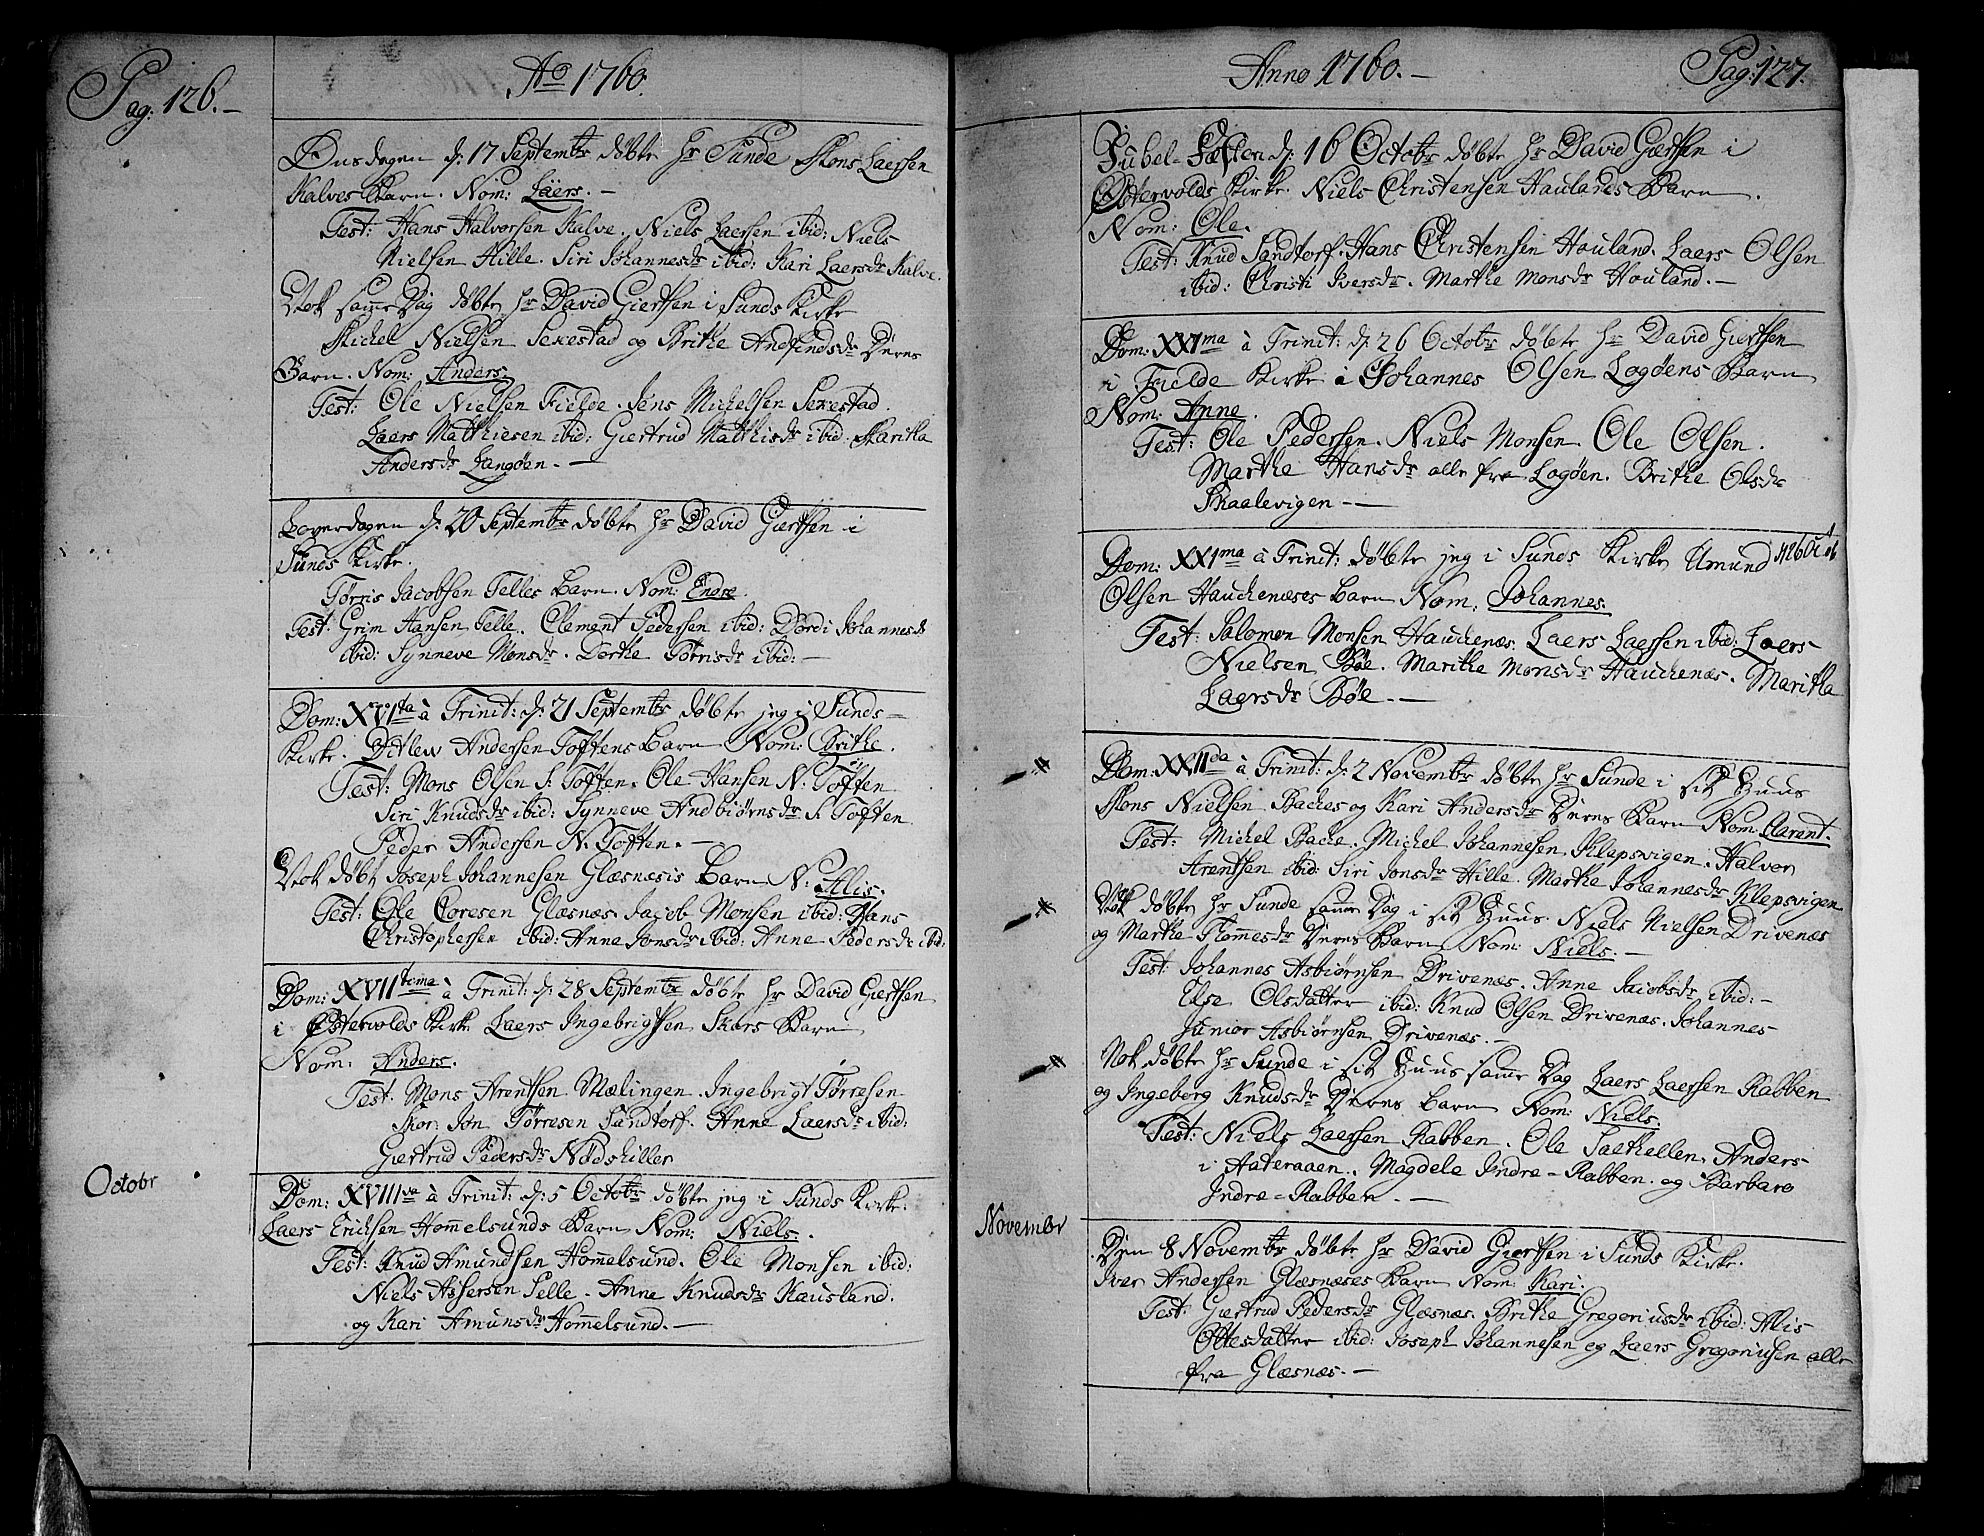 Pag: 126.-
Ao 1760.
Onsdagen d: 17 Septembr døbte hr Sunde Mons Laersen
Kalves Barn. Nom: Läers. -
Test: Hans Halvorsen Kalve. Niels Laersen ibid: Niels
Nielsen Hille. Siri Johannesdr ibid: Kari Laersdr Kalve.
Nok samme Dag døbte hr David Giertsen i Sunds Kirke
Michel Nielsen Sexestad og Brithe Andfindsdr Deres
Barn. Nom: Anders.
Test: Ole Nielsen Fielde. Jens Michelsen Sexestad.
Laers Matthiesen ibid: Giertrud Matthisdr ibid: Maritha
Andersdr Langøen. -
Løverdagen d: 20 Septembr døbte hr David Giertsen i
Sunds Kirke.
Tørris Jacobsen Telles Barn. Nom: Endre.
Test: Grim Hansen Telle. Clement Pedersen ibid: Dordi Johannesdr
ibid: Synneve Monsdr. Dorthe Torrisdr ibid: -
Dom: XVIta à Trinit: d: 21 Septembr døbte jeg i Sunds-
Kirke. Ditlew Andersen Toftens Barn Nom: Brithe.
Test: Mons Olsen S. Toften. Ole Hansen N. Toften
Siri Knudsdr ibid: Synneve Andbiørnsdr S. Toften
Peder Andersen N. Toften. -
Nok døbt Joseph Johannesen Glæsnæsis Barn N: Alis.
Test: Ole Coresen Glæsnæs. Jacob Monsen ibid: Hans
Christophersen ibid: Anne Jonsdr ibid: Anne Pedersdr ibid:
Dom: XVIItima à Trinit: d: 28 Septembr døbte hr David Giertsen
i Østervolds Kirke Laers Ingebrigtsen Skars Barn
Nom: Anders.
Test: Mons Arentsen Mælingen. Ingebrigt Tørresen
Skor: Jon Tørresen Sandtorf. Anne Laersdr ibid:
Giertrud Pedersdr Nødshiller
Octobr
Dom: XVIIIva à Trinit: d: 5 Octobr døbte jeg i Sunds Kirke.
Laers Erichsen Hommelsunds Barn Nom: Niels.
Test: Knud Amundsen Hommelsund. Ole Monsen ibid:
Niels Assersen Telle. Anne Knudsdr Kausland.
og Kari Amunsdr Hommelsund. -
Anno 1760. -
Pag: 127.
Jubel-Festen d: 16 Octobr døbte hr David Giertsen i
Østervolds Kirke. Niels Christensen Haulands Barn.
Nom: Ole.
Test: Knud Sandtorf. Hans Christensen Houland. Laers Olsen
ibid: Christi Iversdr. Marthe Monsdr Houland. -
Dom: XXIma à Trinit: d: 26 Octobr døbte hr David Giertsen
i Fielde Kirke Johannes Olsen Logøens Barn
Nom: Anne.
Test: Ole Pedersen. Niels Monsen. Ole Olsen.
Marthe Hansdr alle fra Logøen. Brithe Olsdr
Skaalevigen -
Dom: XXIma à Trinit: døbte jeg i Sunds Kirke Amund
Olsen Hauchenæses Barn Nom: Johannes.
Test: Salomon Monsen Hauchenæs. Laers Laersen ibid: Laers
Nielsen Bøe. Marithe Monsdr Hauchenæs. Maritha
Laersdr Bøe. -
Dom: XXIIda à Trinit: d: 2 Novembr døbte hr Sunde i sit Huus
Mons Nielsen Baches og Kari Andersdr Deres Barn Nom: Aarent.
Test: Michel Bache. Michel Johannesen Klepsvigen. Halvor
Arentsen ibid: Siri Jonsdr Hille. Marthe Johannesdr Klepsvigen
Nok døbte hr Sunde samme Dag i sit Huus. Niels Nielsen Drivenæs
og Marthe Thommesdr Deres Barn Nom: Niels. -
Test: Johannes Asbiørnsen Drivenæs. Anne Jacobsdr ibid: -
Else Olsdatter ibid: Knud Olsen Drivenæs. Johannes
Junior Asbiørnsen Drivenæs. -
Nok døbte hr Sunde i sit Huus samme Dag Laers Laersen Rabben
og Ingeborg Knudsdr Deres Barn Nom: Niels.
Test: Niels Laersen Rabben. Ole Saethellen. Anders
i Aateraaen. Magdele Indre-Rabben. og Barbaro
Indre-Rabben. -
Novembr
Den 8 Novembr døbte hr David Giertsen i Sunds Kirke.
Iver Andersen Glæsnæses Barn Nom: Kari.
Test: Giertrud Pedersdr Glæsnæs. Brithe Gregoriusdr ibid: Alis
Ottesdatter ibid: Joseph Johannesen og Laers Gregoriusen alle
fra Glæsnæs. -